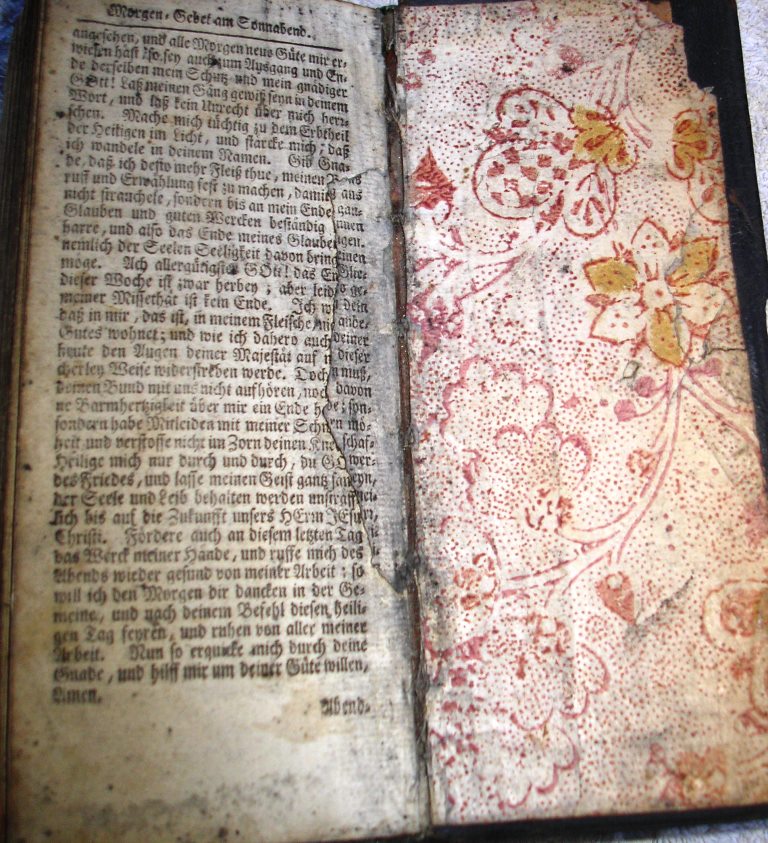 Morgen-Gebet am Sonnabend.
angesehen, und alle Morgen neue Güte mir er-
wiesen hast: so sey auch zum Ausgang und En-
de derselben mein Schutz und mein gnädiger
GOtt! Laß meinen Gang gewiß seyn in deinem
Wort, und laß kein Unrecht über mich herr-
schen. Mache mich tüchtig zu dem Erbtheil
der Heiligen im Licht, und stärcke mich, daß
ich wandele in deinem Namen. Gib Gna-
de, daß ich desto mehr Fleiß thue, meinen
ruff und Erwählung fest zu machen, damit aus
nicht strauchele, sondern bis an mein Ende gan-
Glauben und guten Wercken beständig nnen
barre, und also das Ende meines Glauben igen.
nemlich der Seelen Seeligkeit davon bring einen
möge. Ach allergütigster GOtt! das En Glie-
dieser Woche ist zwar herbey; aber leid s ge-
meiner Missethat ist kein Ende. Ich w dein
daß in mir, das ist, in meinem Fleische anbe-
Gutes wohnet; und wie ich dahero auch deiner
heute den Augen deiner Majestät auf m dieser
cherley Weise widerstreben werde. Doch muß,
deinen Bund mit uns nicht aufhören, noch davon
ne Barmhertzigkeit über mir ein Ende h de; son-
sondern habe Mitleiden mit meiner Sch mö-
heit und verstosse nicht im Zorn deinen Kne schaf-
Heilige mich nur durch und durch, du GO wer-
des Friedes, und lasse meinen Geist gantz sa
der Seele und Leib behalten werden unsträff
lich bis auf die Zukunfft unsers HErrn JEsu
Christi. Fördere auch an diesem letzten Tag
das Werck meiner Hände, und ruffe mich des
Abends wieder gesund von meiner Arbeit; so
will ich den Morgen dir dancken in der Ge-
meine, und nach deinem Befehl diesen heili-
gen Tag feyren, und ruhen von aller meiner
Arbeit. Nun so erquicke mich durch deine
Gnade, und hilff mir um deiner Güte willen,
Amen.
Abend-